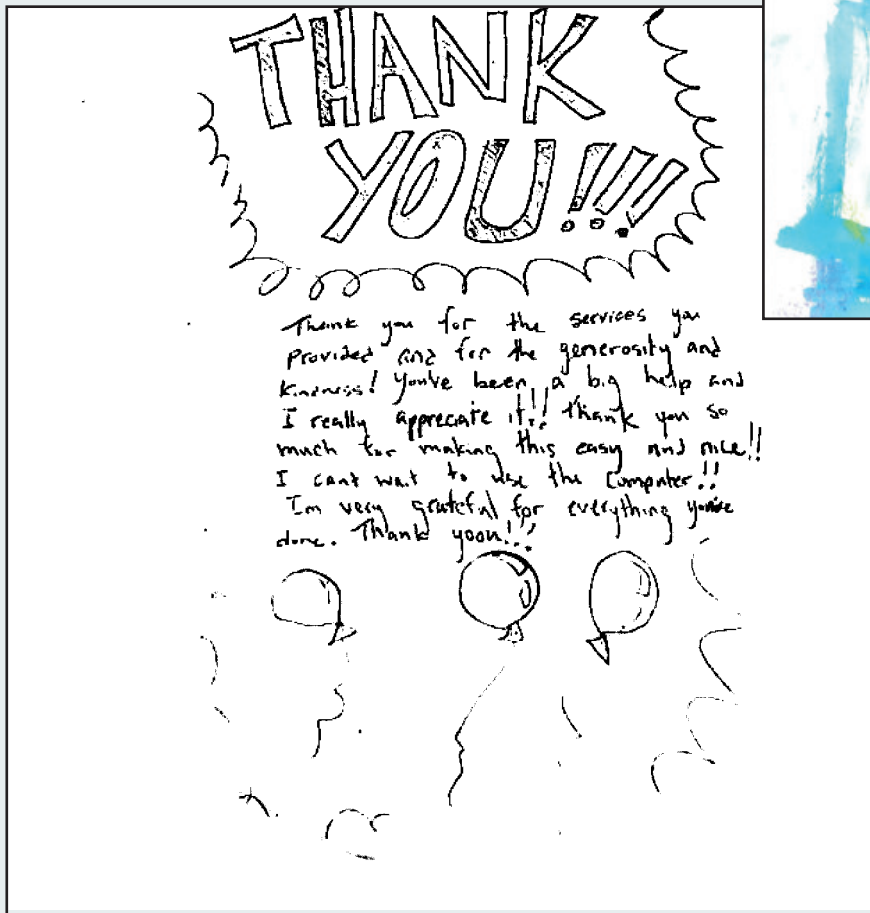 THANK
YOU!!!
Thank you for the services you
provided and for the generosity and
kindness! You've been a big help and
I really appreciate it!! Thank you so
much for making this easy and nice!!
I cant wait to use the computer!!
Im very grateful for everything you've
done. Thank yoou!!!